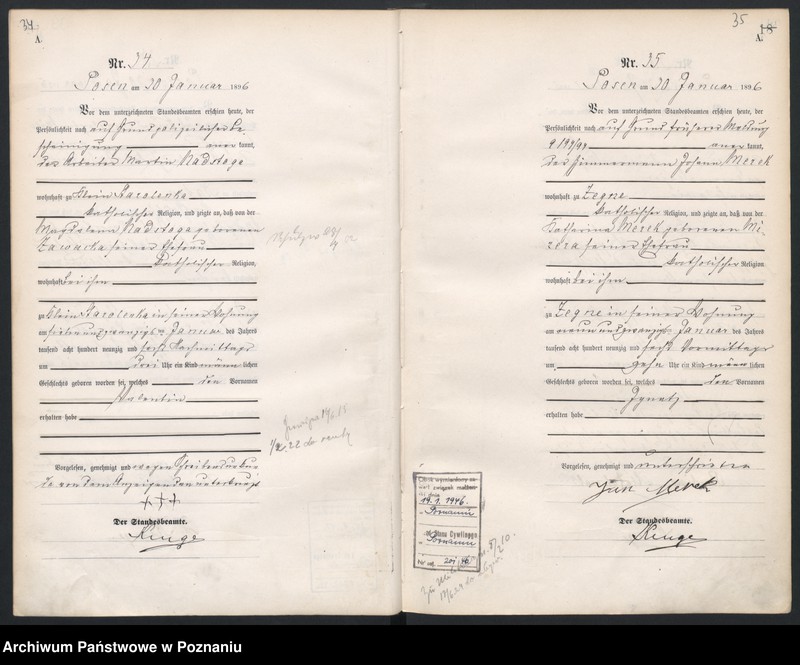 34
A.
Nr. 34
Posen am 30 Januar 1896
Vor dem unterzeichneten Standesbeamten erschien heute, der
Persönlichkeit nach auf Grund polizeilicher Be
scheinigung aner kannt,
der Arbeiter Martin Nadstoga
wohnhaft zu Klein Starolenka
katholischer Religion, und zeigte an, daß von der
Magdalena Nadstoga geborenen
Zawacka seiner Ehefrau
katholischer Religion,
wohnhaft bei ihm
zu Klein Starolenka in seiner Wohnung
am siebenundzwanzigsten Januar des Jahres
tausend acht hundert neunzig und sechs Nachmittags
um drei Uhr ein Kind männlichen
Geschlechts geboren worden sei, welches den Vornamen
Valentin
erhalten habe
Vorgelesen, genehmigt und wegen Schreibensunkun
de von dem Anzeigenden unterkreuzt
+++
Der Standesbeamte.
35
A.
Nr. 35
Posen am 30 Januar 1896
Vor dem unterzeichneten Standesbeamten erschien heute, der
Persönlichkeit nach auf Grund früherer Meldung
aner kannt,
der Zimmermann Johann Merek
wohnhaft zu Zegrze
katholischer Religion, und zeigte an, daß von der
Katharina Merek geborenen Mi
zera seiner Ehefrau
katholischer Religion
wohnhaft bei ihm
zu Zegrze in seiner Wohnung
am neunundzwanzigsten Januar des Jahres
tausend acht hundert neunzig und sechs Vormittags
um zehn Uhr ein Kind männlichen
Geschlechts geboren worden sei, welches den Vornamen
Ignatz
erhalten habe
Vorgelesen, genehmigt und unterschrieben
Jan Merek
Der Standesbeamte.
19.9.1946.
Poznaniu
Stanu Cywilnego
Poznaniu
Archiwum Państwowe w Poznaniu